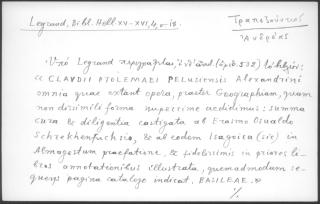 Legrand, Bibl. Hell. XV-XVI, 4, σ. 18.
Τραπεζούντιος
Ἀνδρέας
Ὑπὸ Legrand περιγράφεται, (ἀριθ. 538) τὸ βιβλίον:
« CLAVDII PTOLEMAEI PELUSIENSIS Alexandrini
omnia quae extant opera, praeter Geographiam, quam
non dissimili forma nuperrime aedidimus: summa
cura & diligentia castigata ab Erasmo Osualdo
Schrekhenfuchsio, & ab eodem Isagoica (sic) in
Almagestum praefatione, & fidelissimis in priores li-
bros annotationibus illustrata, quemadmodum se-
quens pagina catalogo indicat. BASILEAE. »
·/.